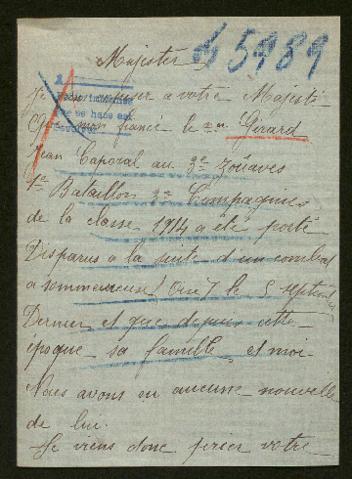 Majester
5989
Je vous à votre Majesté
Que mon fiancé le nn Girard
Jean Caporal au 3e Zouaves
1er Bataillon 3e Compagnie
de la classe 1914 a été porté
Disparus a la suite d'un combat
a sommeseuse le 5 septembre
Dernier et que depuis cette
epoque sa famille et moi
Nous avons eu aucunne nouvelle
de lui.
Je viens donc prier votre